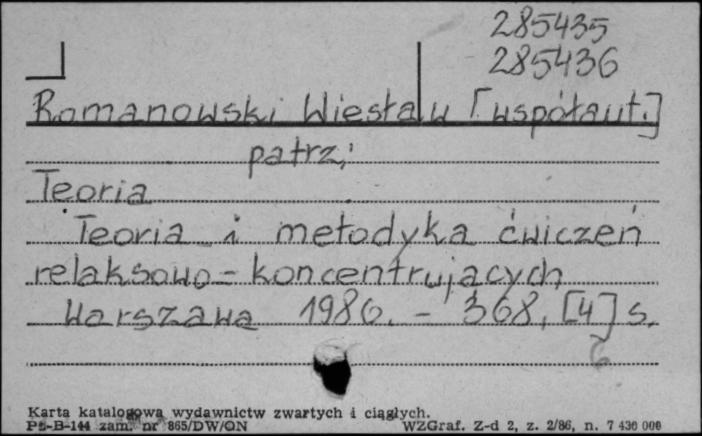 285435
285436
Romanowski Wiesław [współaut.]
patrz:
Teoria
Teoria i metodyka ćwiczeń
relaksowo-koncentrujących
Warszawa 1986. - 368, [4] s.
6
Karta katalogowa wydawnictw zwartych i ciągłych.
Pu-B-144 zam. nr 865/DW/ON WZGraf. Z-d 2, z. 2/86, n. 7 430 000